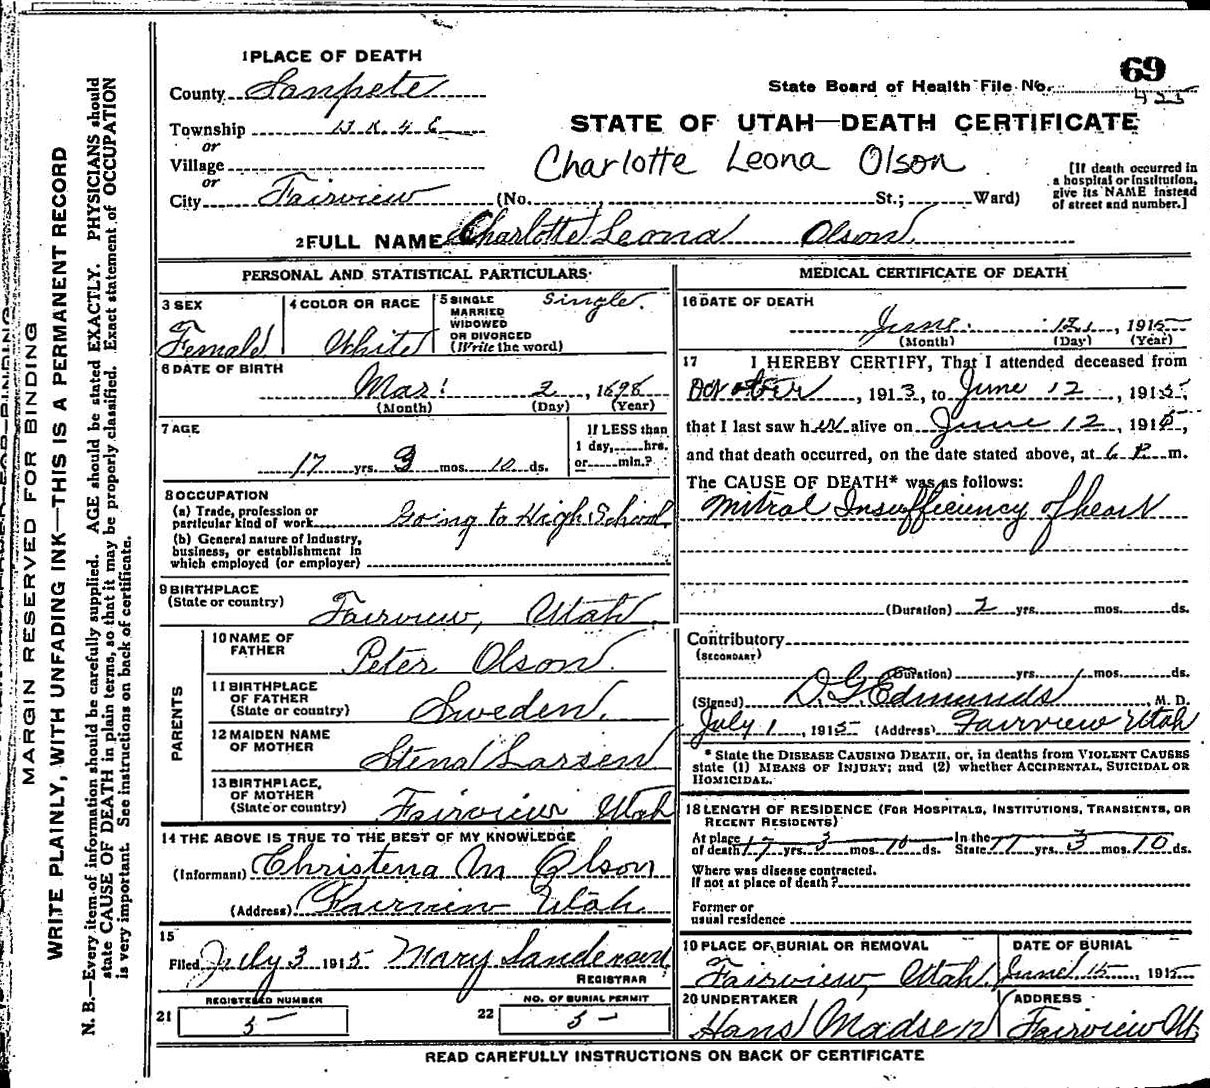 1 PLACE OF DEATH
County Sanpete
Township 13 R. 4 E
or
Village
or
City Fairview (No. , St.; Ward)
69
State Board of Health File No. 425
STATE OF UTAH—DEATH CERTIFICATE
Charlotte Leona Olson
[If death occurred in
a hospital or institution,
give its NAME instead
of street and number.]
2 FULL NAME Charlotte Leona Olson
PERSONAL AND STATISTICAL PARTICULARS
3 SEX
Female
4 COLOR OR RACE
White
5 SINGLE
MARRIED
WIDOWED
OR DIVORCED
(Write the word)
Single.
6 DATE OF BIRTH
Mar. 2, 1898
(Month) (Day) (Year)
7 AGE
17 yrs. 3 mos. 10 ds.
If LESS than
1 day, hrs.
or min.?
8 OCCUPATION
(a) Trade, profession or
particular kind of work Going to High School
(b) General nature of industry,
business, or establishment in
which employed (or employer)
9 BIRTHPLACE
(State or country) Fairview, Utah.
PARENTS
10 NAME OF
FATHER Peter Olson.
11 BIRTHPLACE
OF FATHER
(State or country) Sweden.
12 MAIDEN NAME
OF MOTHER Stena Larsen
13 BIRTHPLACE,
OF MOTHER
(State or country) Fairview Utah
14 THE ABOVE IS TRUE TO THE BEST OF MY KNOWLEDGE
(Informant) Christena M Olson
(Address) Fairview Utah.
15
Filed July 3 1915 Mary Sanderson
REGISTRAR
REGISTERED NUMBER
21 5
NO. OF BURIAL PERMIT
22 5
MEDICAL CERTIFICATE OF DEATH
16 DATE OF DEATH
June. 12, 1915
(Month) (Day) (Year)
17 I HEREBY CERTIFY, That I attended deceased from
October, 1913, to June 12, 1915,
that I last saw her alive on June 12, 1915,
and that death occurred, on the date stated above, at 6 P. m.
The CAUSE OF DEATH* was as follows:
Mitral Insufficiency of heart
(Duration) 2 yrs. mos. ds.
Contributory
(SECONDARY)
(Duration) yrs. mos. ds.
(Signed) D. G. Edmunds M. D.
July 1, 1915 (Address) Fairview Utah
* State the DISEASE CAUSING DEATH, or, in deaths from VIOLENT CAUSES
state (1) MEANS OF INJURY; and (2) whether ACCIDENTAL, SUICIDAL OR
HOMICIDAL.
18 LENGTH OF RESIDENCE (FOR HOSPITALS, INSTITUTIONS, TRANSIENTS, OR
RECENT RESIDENTS)
At place In the
of death 17 yrs. 3 mos. 10 ds. State 17 yrs. 3 mos. 10 ds.
Where was disease contracted.
If not at place of death?
Former or
usual residence
19 PLACE OF BURIAL OR REMOVAL
Fairview, Utah.
DATE OF BURIAL
June 15, 1915
20 UNDERTAKER
Hans Madsen
ADDRESS
Fairview Ut
READ CAREFULLY INSTRUCTIONS ON BACK OF CERTIFICATE
MARGIN RESERVED FOR BINDING
WRITE PLAINLY, WITH UNFADING INK—THIS IS A PERMANENT RECORD
N. B.—Every item of information should be carefully supplied. AGE should be stated EXACTLY. PHYSICIANS should
state CAUSE OF DEATH in plain terms, so that it may be properly classified. Exact statement of OCCUPATION
is very important. See instructions on back of certificate.